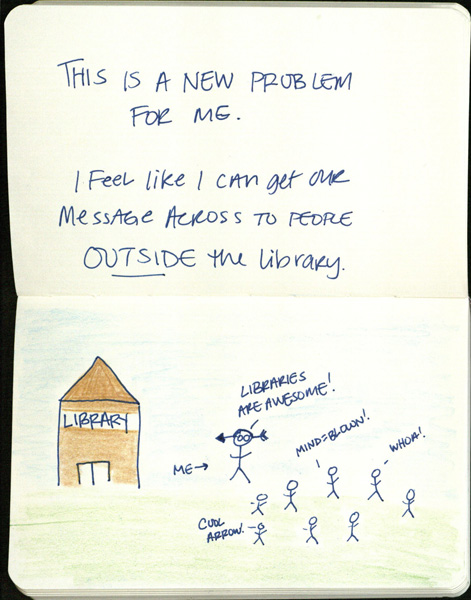 THIS IS A NEW PROBLEM
FOR ME.
I Feel like I CAN get OUR
MESSAGE ACROSS TO PEOPLE
OUTSIDE the library.
LIBRARY
LIBRARIES
ARE AWESOME!
ME→
MIND=BLOWN!
WHOA!
COOL
ARROW.